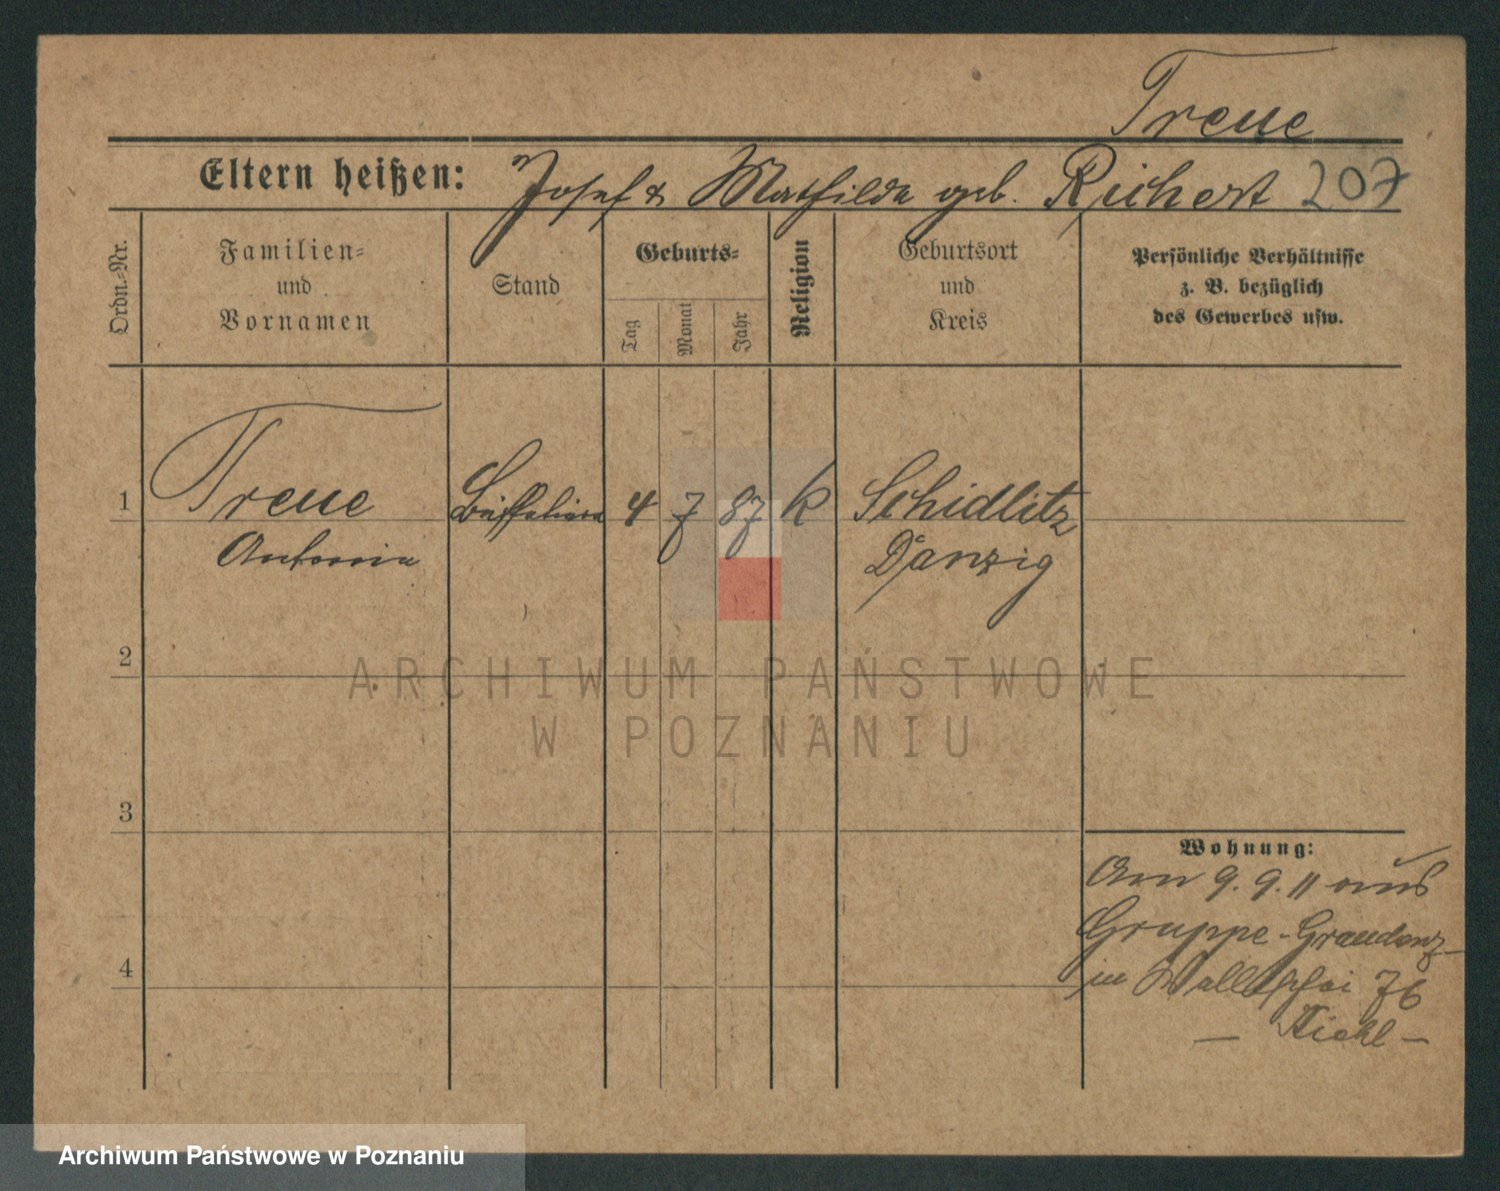 Treue
Eltern heißen: Josef & Mathilde geb. Richert 207
Ordn.-Nr.
Familien-
und
Vornamen
Stand
Geburts-
Tag
Monat
Jahr
Religion
Geburtsort
und
Kreis
Persönliche Verhältnisse
z. B. bezüglich
des Gewerbes usw.
1 Treue 4 7 87 k Schidlitz
Antonie Danzig
2
3
4
Wohnung:
Am 9. 9. 11 aus
Gruppe-Graudenz
in 76
ARCHIWUM PAŃSTWOWE
W POZNANIU
Archiwum Państwowe w Poznaniu